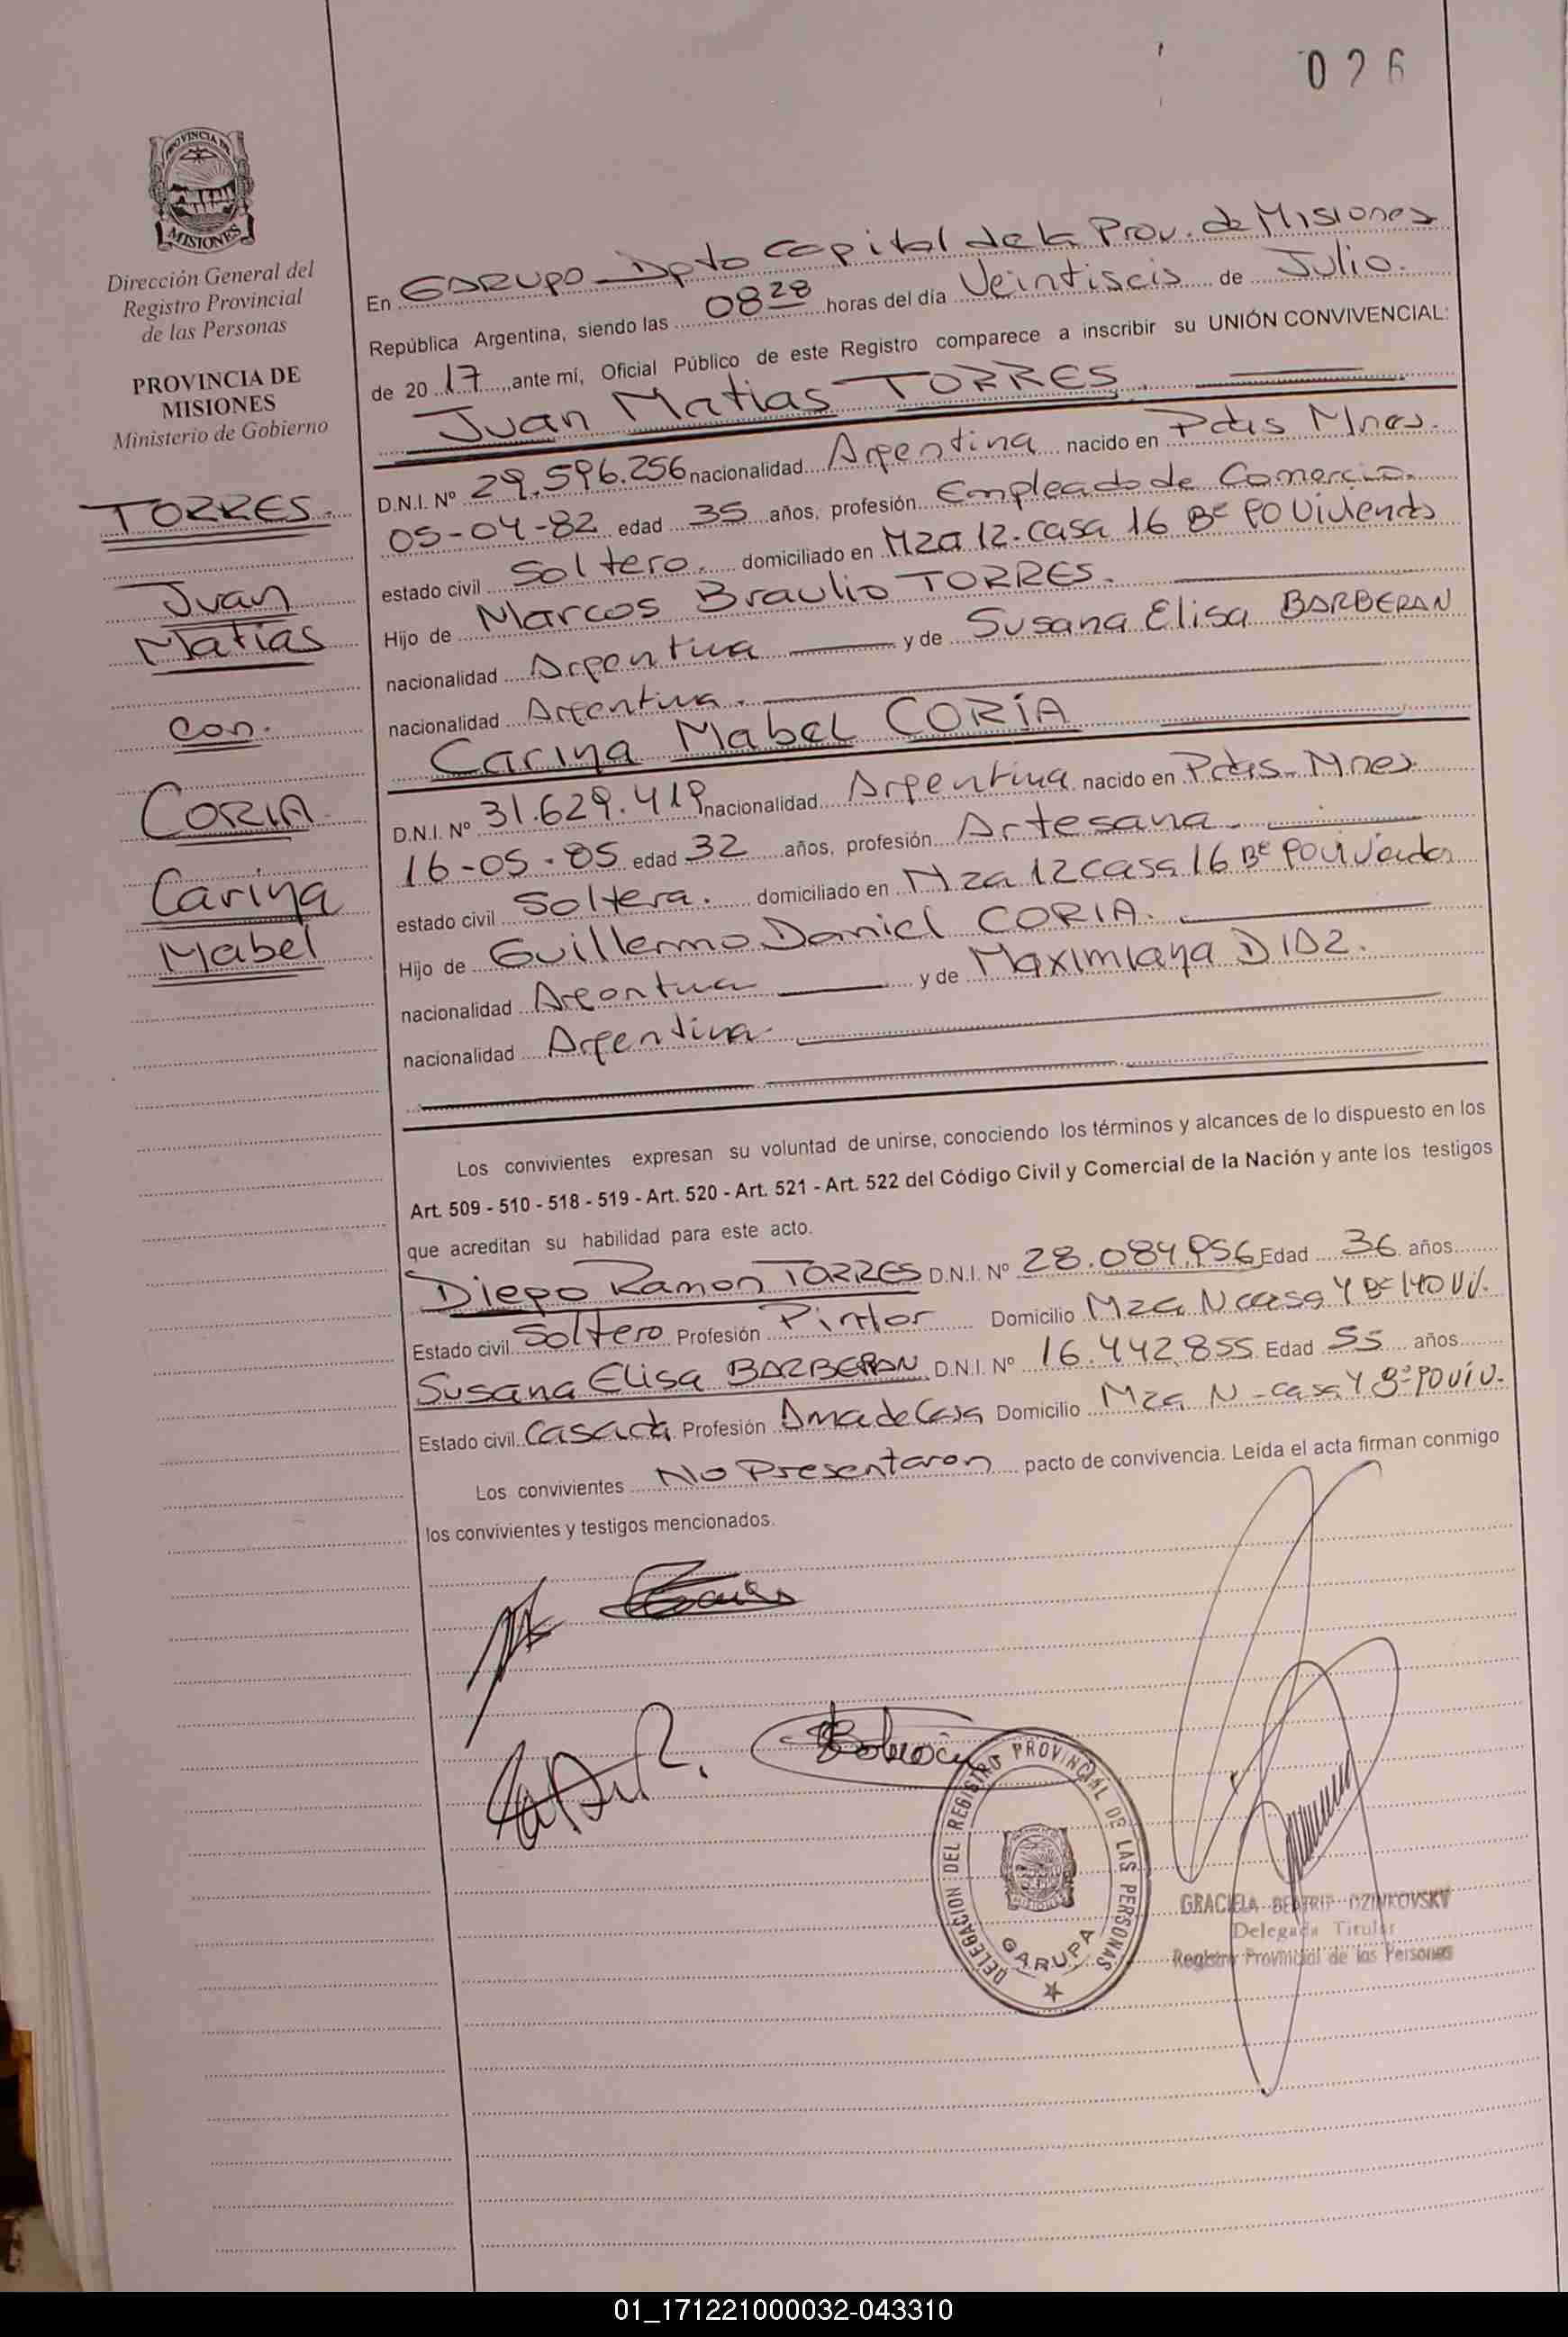 026
PROVINCIA DE
MISIONES
Dirección General del
Registro Provincial
de las Personas
PROVINCIA DE
MISIONES
Ministerio de Gobierno
TORRES.
Juan
Matias
con.
CORIA
Carina
Mabel
En GARUPA Dpto Capital de la Prov. de Misiones
República Argentina, siendo las 08 28 horas del día Veintiseis de Julio.
de 20 17 ante mí, Oficial Público de este Registro comparece a inscribir su UNIÓN CONVIVENCIAL:
Juan Matias TORRES.
D.N.I. Nº 29.596.256 nacionalidad Argentina nacido en Pdas Mnes.
05-04-82 edad 35 años, profesión Empleado de Comercio.
estado civil Soltero. domiciliado en Mza 12-casa 16 Bº 90 Viviendas
Hijo de Marcos Braulio TORRES.
nacionalidad Argentina y de Susana Elisa BARBERAN
nacionalidad Argentina.
Carina Mabel CORIA
D.N.I. Nº 31.629.419 nacionalidad Argentina nacido en Pdas-Mnes
16-05-85 edad 32 años, profesión Artesana.
estado civil Soltera. domiciliado en Mza 12 casa 16 Bº 90 Viviendas
Hijo de Guillermo Daniel CORIA.
nacionalidad Argentina y de Maximiana DIAZ.
nacionalidad Argentina.
Los convivientes expresan su voluntad de unirse, conociendo los términos y alcances de lo dispuesto en los
Art. 509 - 510 - 518 - 519 - Art. 520 - Art. 521 - Art. 522 del Código Civil y Comercial de la Nación y ante los testigos
que acreditan su habilidad para este acto.
Diego Ramon TORRES D.N.I. Nº 28.084.956 Edad 36 años
Estado civil Soltero Profesión Pintor Domicilio Mza N casa 4 Bº 140 Viv.
Susana Elisa BARBERAN D.N.I. Nº 16.442.855 Edad 55 años
Estado civil Casada Profesión Ama de Casa Domicilio Mza N - casa 4 Bº 90 viv.
Los convivientes No Presentaron pacto de convivencia. Leída el acta firman conmigo
los convivientes y testigos mencionados.
DELEGACION DEL REGISTRO PROVINCIAL DE LAS PERSONAS
GARUPA
GRACIELA BEATRIZ DZINKOVSKY
Delegada Titular
Registro Provincial de las Personas
01_171221000032-043310